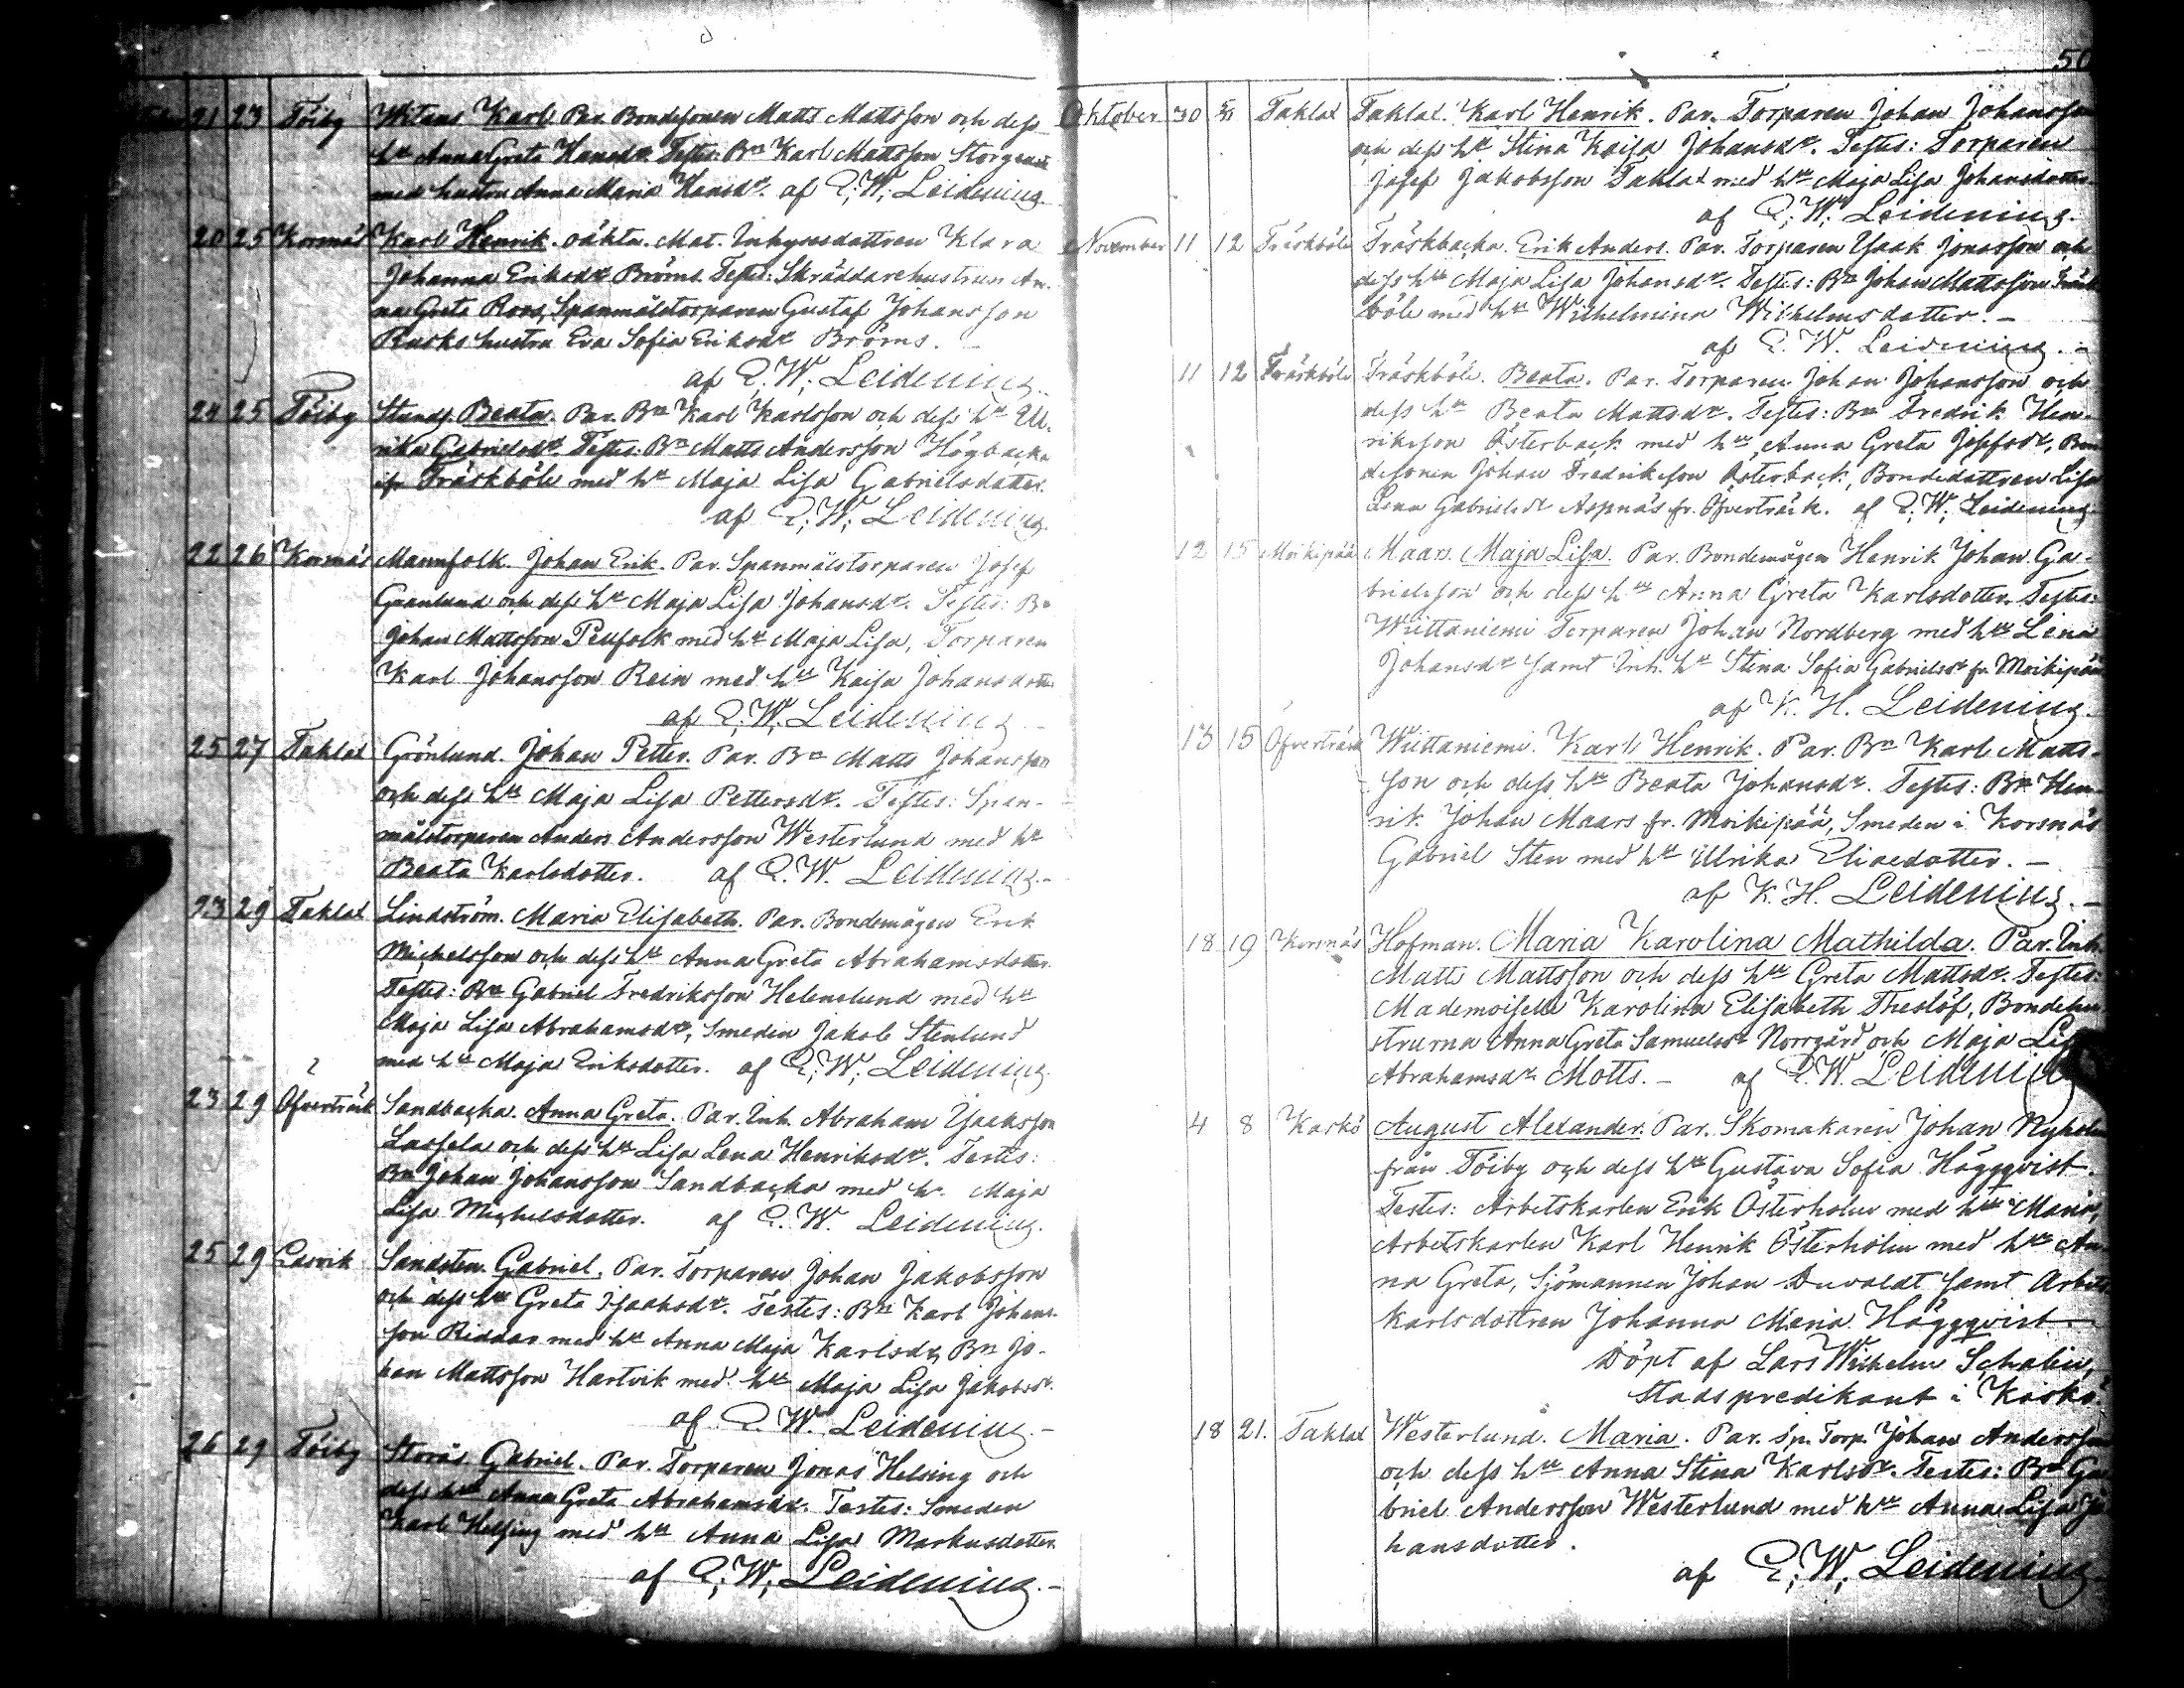 21 23 Töiby Witans Karl. Par. Bondesonen Matts Mattsson och dess
hu Anna Greta Hansdr. Testes: Bn Karl Mattsson Storgeust
med hustru Anna Maria Hansdr. af E. W. Leidenius.
20 25 Korsnäs Karl Henrik. oäkta. Mat. Inhysesdottren Klara
Johanna Eriksdr Bröms. Testes: Skräddarehustrun An-
na Greta Roos, Spanmålstorparen Gustaf Johansson
Rusks hustru Eva Sofia Eriksdr Bröms.
af E. W. Leidenius.
24 25 Töiby Beata. Par. Bn Karl Karlsson och dess hu Ul-
rika Gabrielsdr. Testes: Bn Matts Andersson Högbacka
ifr Träskböle med hu Maja Lisa Gabrielsdotter.
af E. W. Leidenius.
22 26 Korsnäs Mannfolk. Johan Erik. Par. Spanmålstorparen Josef
Granlund och dess hu Maja Lisa Johansdr. Testes: Bn
Johan Mattsson Penfolk med hu Maja Lisa, Torparen
Karl Johansson Rein med hu Kaisa Johansdotter
af E. W. Leidenius.
25 27 Taklax Grönlund. Johan Petter. Par. Bn Matts Johansson
och dess hu Maja Lisa Pettersdr. Testes: Span-
målstorparen Anders Andersson Westerlund med hu
Beata Karlsdotter. af E. W. Leidenius.-
23 29 Taklax Lindström. Maria Elisabeth. Par. Bondemågen Erik
Michelsson och dess hu Anna Greta Abrahamsdotter.
Testes: Bn Gabriel Fredriksson Helenelund med hu
Maja Lisa Abrahamsdr, Smeden Jakob Stenlund
med hu Maja Eriksdotter. af E. W. Leidenius.
23 29 Öfverträsk Sandbacka. Anna Greta. Par. Inh. Abraham Ysaksson
Lassela och dess hu Lisa Lena Henriksdr. Testes:
Bn Johan Johansson Sandbacka med hu Maja
Lisa Michelsdotter. af E. W. Leidenius.
25 29 Edsvik Sandsten. Gabriel. Par. Torparen Johan Jakobsson
och dess hu Greta Isaaksdr. Testes: Bn Karl Johans-
son Riddar med hu Anna Maja Karlsdr, Bn Jo-
han Mattsson Hartvik med hu Maja Lisa Jakobsdr.
af E. W. Leidenius.-
26 29 Töiby Storås. Gabriel. Par. Torparen Jonas Helsing och
dess hu Anna Greta Abrahamsdr. Testes: Smeden
Karl Helsing med hu Anna Lisa Markusdotter.
af E. W. Leidenius.-
50
Oktober 30 Taklax Taklax. Karl Henrik. Par. Torparen Johan Johansson
och dess hu Stina Kaisa Johansdr. Testes: Torparen
Josef Jakobsson Taklax med hu Maja Lisa Johansdotter.
af E. W. Leidenius.
November 11 12 Träskböle Träskbacka. Erik Anders. Par. Torparen Ysaak Jonasson och
dess hu Maja Lisa Johansdr. Testes: Bn Johan Mattsson Träsk-
böle med hu Wilhelmina Wilhelmsdotter.-
af E. W. Leidenius.-
11 12 Träskböle Träskböle. Beata. Par. Torparen Johan Johansson och
dess hu Beata Mattsdr. Testes: Bn Fredrik Hen-
riksson Österback med hu Anna Greta Josefsdr, Bon-
desonen Johan Fredriksson Österback, Bondedottren Lisa
Lena Gabrielsdr Aspnäs fr. Öfverträsk. af E. W. Leidenius.
12 15 Moikipää Maars. Maja Lisa. Par. Bondemågen Henrik Johan Ga-
brielsson och dess hu Anna Greta Karlsdotter. Testes:
Wiittaniemi Torparen Johan Nordberg med hu Lena
Johansdr samt Inh. hu Stina Sofia Gabrielsdr fr. Moikipää
af K. H. Leidenius.
13 15 Öfverträsk Wiittaniemi. Karl Henrik. Par. Bn Karl Matts-
son och dess hu Beata Johansdr. Testes: Bn Hen-
rik Johan Maars fr. Moikipää, Smeden i Korsnäs
Gabriel Sten med hu Ulrika Eliaedotter.-
af K. H. Leidenius.-
18 19 Korsnäs Hofman. Maria Karolina Mathilda. Par. Inh.
Matts Mattsson och dess hu Greta Mattsdr. Testes:
Mademoiselle Karolina Elisabeth Theslöf, Bondehu-
strurna Anna Greta Samuelsdr Norrgård och Maja Lisa
Abrahamsdr Motts.- af E. W. Leidenius
4 8 Kaskö August Alexander. Par. Skomakaren Johan Nyholm
från Töiby och dess hu Gustava Sofia Häggqvist.
Testes: Arbetskarlen Erik Österholm med hu Maria,
Arbetskarlen Karl Henrik Österholm med hu An-
na Greta, Sjömannen Johan Duvaldt samt Arbets-
karlsdottren Johanna Maria Häggqvist
Döpt af Lars Wilhelm Schalin,
Stadspredikant i Kaskö.
18 21. Taklax Westerlund. Maria. Par. Sp. Torp. Johan Andersson
och dess hu Anna Stina Karlsdr. Testes: Bn Ga-
briel Andersson Westerlund med hu Anna Lisa Jo-
hansdotter.
af E. W. Leidenius